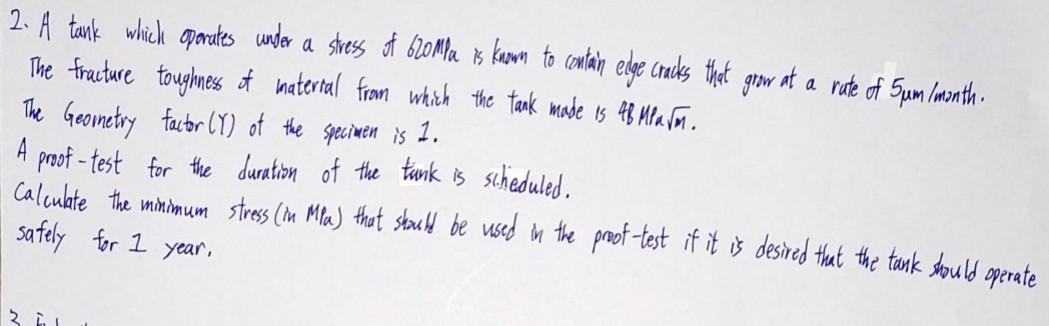 2. A tank which operates under a stress of 620MPa is known to contain edge cracks that grow at a rate of 5μm/month.
The fracture toughness of material from which the tank made is 48 MPa√m.
The Geometry factor (Y) of the specimen is 1.
A proof-test for the duration of the tank is scheduled.
Calculate the minimum stress (in MPa) that should be used in the proof-test if it is desired that the tank should operate
safely for 1 year.
3.